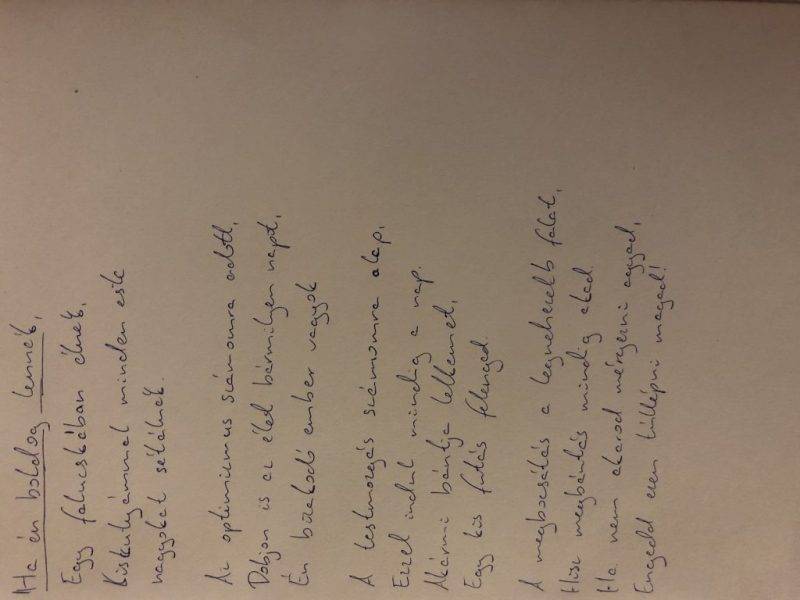 Ha én boldog lennék,
Egy falucskában élnék,
Kiskutyámmal minden este
nagyokat sétálnék.
Az optimizmus számomra adott,
Dobjon is az élet bármilyen napot,
Én bizakodó ember vagyok
A testmozgás számomra alap,
Ezzel indul mindig a nap.
Akármi bántja lelkemet,
Egy kis futás felenged
A megbocsátás a legnehezebb falat,
Hisz megbántás mindig akad.
Ha nem akarod mérgezni agyad,
Engedd ezen túllépni magad!